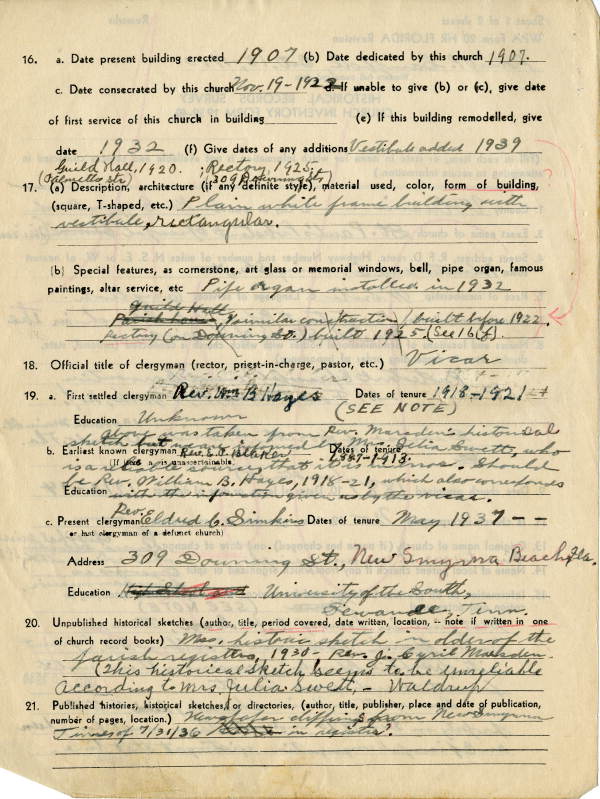 16. a. Date present building erected 1907 (b) Date dedicated by this church 1907.
c. Date consecrated by this church Nov. 19-1922 d. If unable to give (b) or (c), give date
of first service of this church in building (e) If this building remodelled, give
date 1932 (f) Give dates of any additions Vestibule added 1939
Guild Hall, 1920. ; Rectory, 1925.
(Palmetto St.) (309 Downing St.)
17. (a) Description, architecture (if any definite style), material used, color, form of building,
(square, T-shaped, etc.) Plain white frame building with
vestibule, rectangular.
(b) Special features, as cornerstone, art glass or memorial windows, bell, pipe organ, famous
paintings, altar service, etc Pipe organ installed in 1932
Guild Hall
Parish House, similar construction, built before 1922.
rectory (on Downing St.) built 1925. (See 16 f).
18. Official title of clergyman (rector, priest-in-charge, pastor, etc.) Vicar
19. a. First settled clergyman Rev. Wm B Hayes Dates of tenure 1918-1921
(SEE NOTE)
Education Unknown
Above was taken from Rev. Marsden's historical
sketch, but Mrs. Julia Swett, who
b. Earliest known clergyman Rev. Dates of tenure
(If item a. is unascertainable)
is a that it is in error. Should
be Rev. William B. Hayes, 1918-21, which also corresponds
Education
with the information given us by the vicar.
Rev.
c. Present clergyman Eldred C. Simkins Dates of tenure May 1937 --
or last clergyman of a defunct church)
Address 309 Downing St., New Smyrna Beach, Fla.
Education High School and University of the South,
Sewanee, Tenn.
20. Unpublished historical sketches (author, title, period covered, date written, location, -- note if written in one
of church record books) Mss. historic sketch in older of the
parish registers, 1930 - Rev. J. Cyril Marsden.
(This historical sketch seems to be unreliable
according to Mrs. Julia Swett, - Waldrup
21. Published histories, historical sketches, or directories, (author, title, publisher, place and date of publication,
number of pages, location.) Newspaper clippings from New Smyrna
Times of 7/31/36 in register.